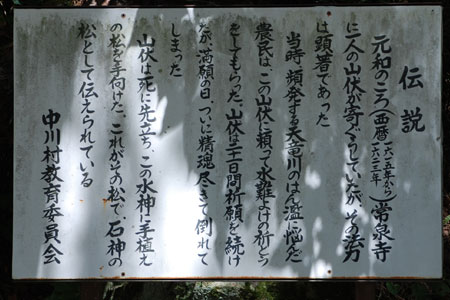 伝説
元和のころ(西暦一六一五年から一六二三年)常泉寺
に一人の山伏が寄ぐうしていたが、その法力
は顕著であった
当時、頻発する天竜川のはん濫に悩んだ
農民は、この山伏に頼って水難よけの祈とう
をしてもらった。山伏は二十一日間祈願を続け
たが、満願の日、ついに精魂尽きて倒れて
しまった
山伏は死に先立ち、この水神に手植え
の松を手向けた、これがその松で、石神の
松として伝えられている
中川村教育委員会